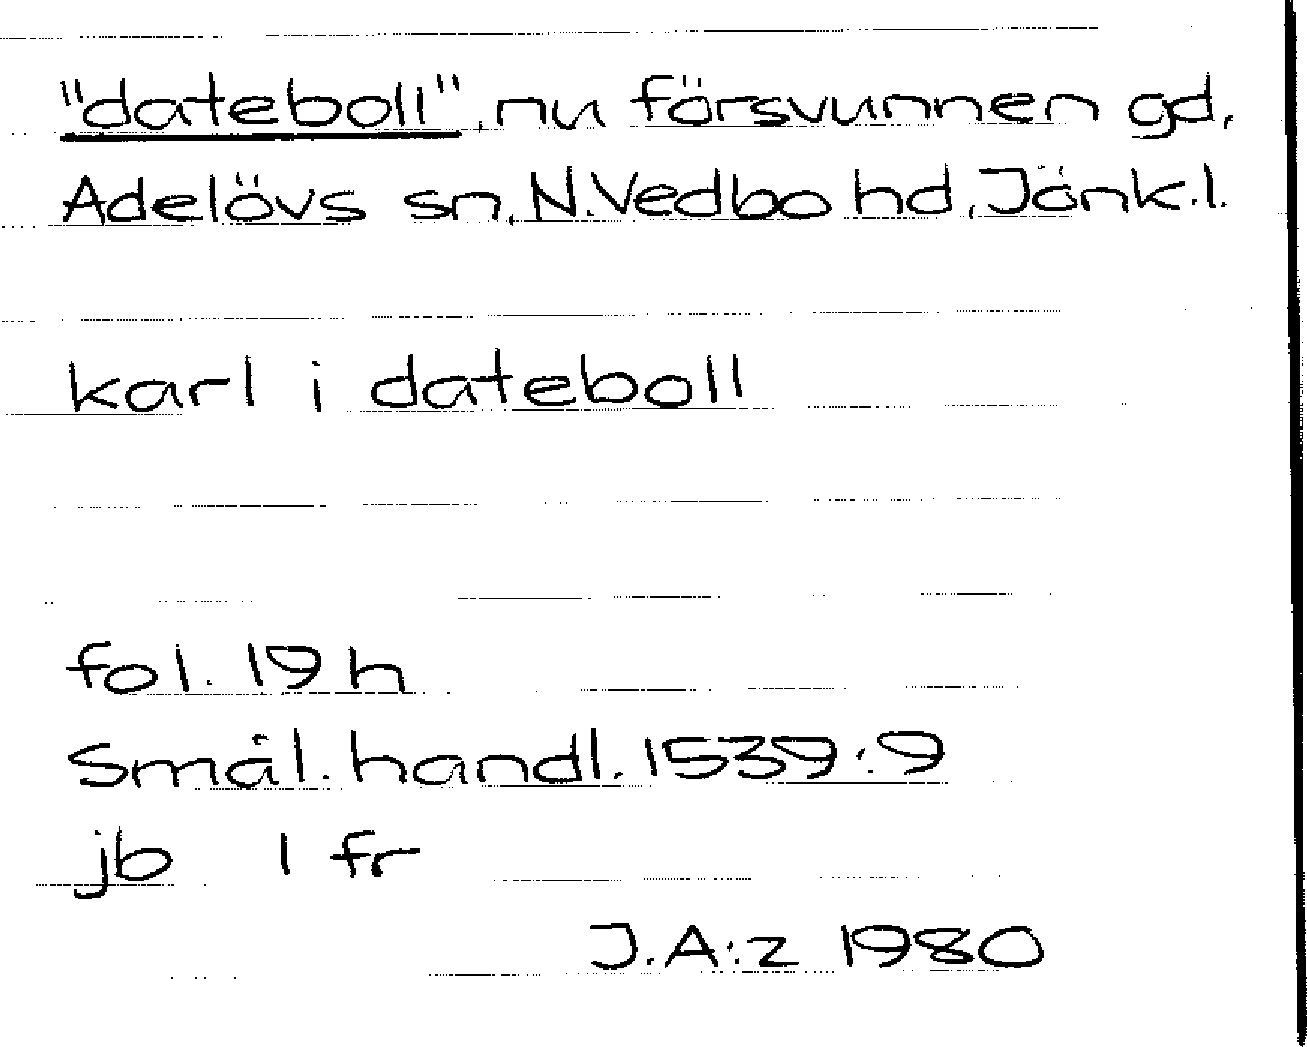 "dateboll", nu försvunnen gd,
Adelövs sn, N. Vedbo hd, Jönk. l.
karl i dateboll
fol. 19 h
Smål. handl. 1539:9
jb 1 fr
J.A:z 1980